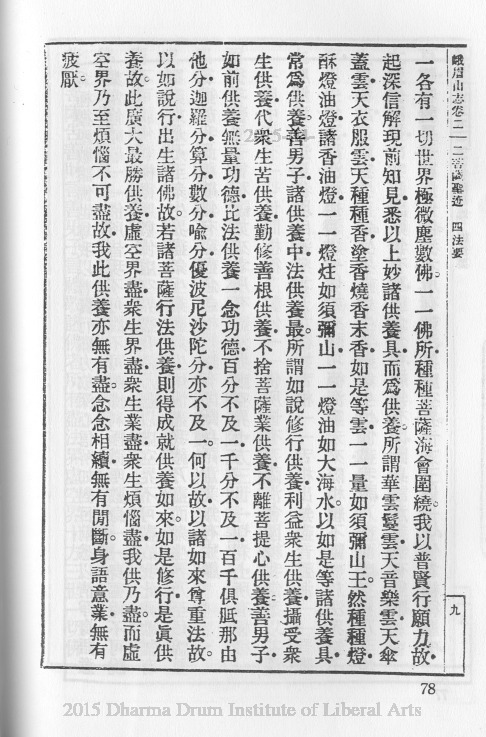 峨眉山志卷二　二菩薩聖迹　四法要
一各有一切世界極微塵數佛。一一佛所。種種菩薩海會圍繞。我以普賢行願力故。
起深信解現前知見。悉以上妙諸供養具。而爲供養。所謂華雲鬘雲。天音樂雲。天傘
蓋雲。天衣服雲。天種種香。塗香燒香末香。如是等雲。一一量如須彌山王。然種種燈。
酥燈油燈。諸香油燈。一一燈炷如須彌山。一一燈油如大海水。以如是等諸供養具。
常爲供養。善男子。諸供養中。法供養最。所謂如說修行供養。利益衆生供養。攝受衆
生供養。代衆生苦供養。勤修善根供養。不捨菩薩業供養。不離菩提心供養。善男子。
如前供養無量功德。比法供養一念功德。百分不及一。千分不及一。百千俱胝那由
他分。迦羅分。算分。數分。喻分。優波尼沙陀分。亦不及一。何以故。以諸如來尊重法故。
以如說行出生諸佛故。若諸菩薩行法供養。則得成就供養如來。如是修行。是眞供
養故。此廣大最勝供養。虛空界盡。衆生界盡。衆生業盡。衆生煩惱盡。我供乃盡。而虛
空界乃至煩惱不可盡故。我此供養亦無有盡。念念相續。無有閒斷。身語意業。無有
疲厭。
九
78
2015 Dharma Drum Institute of Liberal Arts